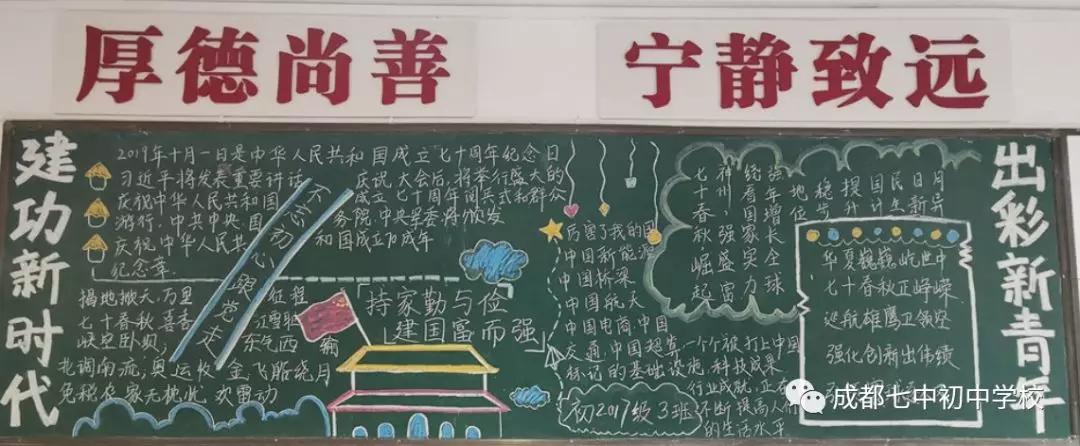 厚德尚善
宁静致远
建功新时代
2019年十月一日是中华人民共和国成立七十周年纪念日
习近平将发表重要讲话 庆祝大会后,将举行盛大的
庆祝中华人民共和国 成立七十周年阅兵式和群众
游行,中共中央、国 务院、中央军委将颁发
庆祝中华人民共 和国成立70周年
纪念章.
不忘初心跟党走
揭地掀天,万里 征程
七十春秋
北调南流,奥运收金,飞船绕月
免税农家无税忧 欢雷动
持家勤与俭
建国富而强
厉害了我的国
中国新能源
中国桥梁
中国航天
中国电商,中国
交通,中国超算一个个被打上中国
标记的基础设施,科技成果
行业成就,正在
不断提高人们
的生活水平
初2017级3班
七十春秋崛起
神州,看强盛富
统一国家实力
强年增长全球
地位
稳步
提升
国计
民生
日新
月异
华夏巍巍屹世中
七十春秋正峥嵘
巡航雄鹰卫领空
强化创新出伟绩
出彩新青年
成都七中初中学校